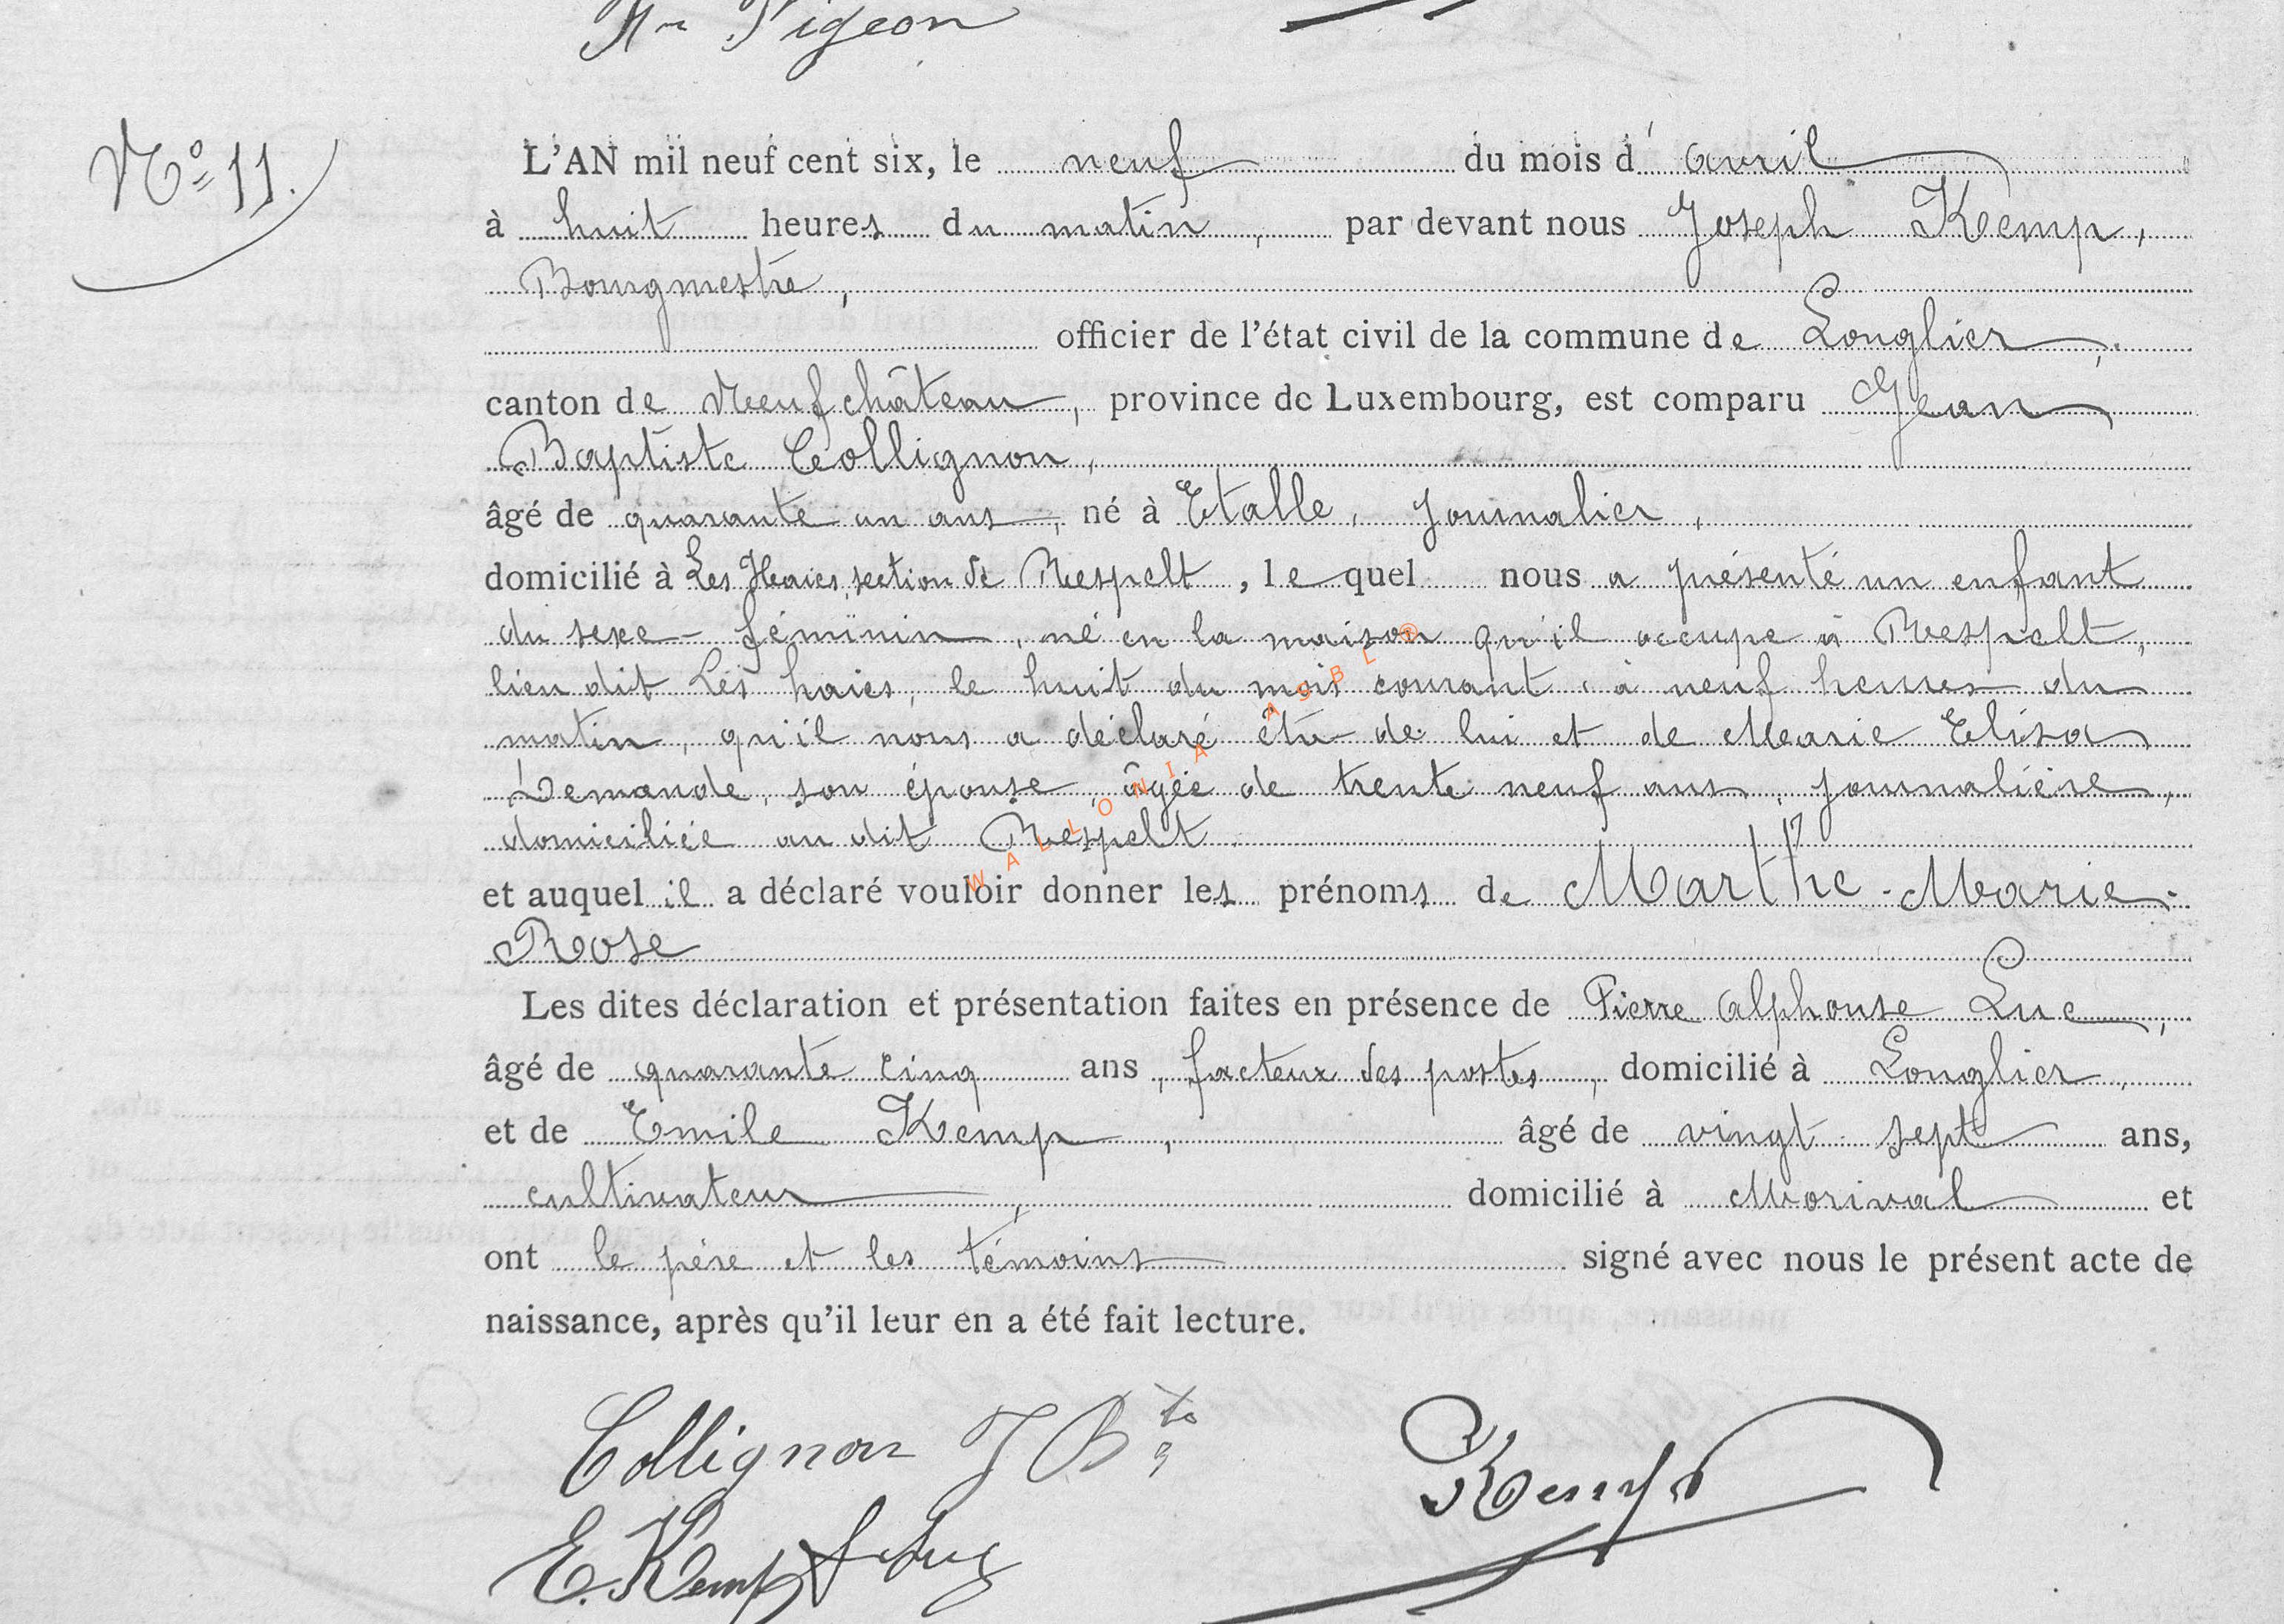 Pigeon
L'AN mil neuf cent six, le neuf du mois d' avril
Nº 11.
à huit heures du matin, par devant nous Joseph Kemp,
Bourgmestre,
officier de l'état civil de la commune de Longlier,
canton de Neufchâteau, province de Luxembourg, est comparu Jean
Baptiste Collignon,
âgé de quarante un ans, né à Etalle, journalier,
domicilié à Les Haies, section de Respelt, lequel nous a présenté un enfant
du sexe féminin, né en la maison qu'il occupe à Respelt,
lieu dit Les haies, le huit du mois courant, à neuf heures du
matin, qu'il nous a déclaré être de lui et de Marie Elisa
Demande, son épouse, âgée de trente neuf ans, journalière,
domiciliée au dit Respelt.
et auquel il a déclaré vouloir donner les prénoms de Marthe-Marie-
Rose
Les dites déclaration et présentation faites en présence de Pierre Alphonse Luc,
âgé de quarante cinq ans, facteur des postes, domicilié à Longlier,
et de Emile Kemp, âgé de vingt sept ans,
cultivateur, domicilié à Morival et
ont le père et les témoins signé avec nous le présent acte de
naissance, après qu'il leur en a été fait lecture.
Collignon J Bte
Kemp
E. Kemp A Luc
WALLONIA ASBL ®